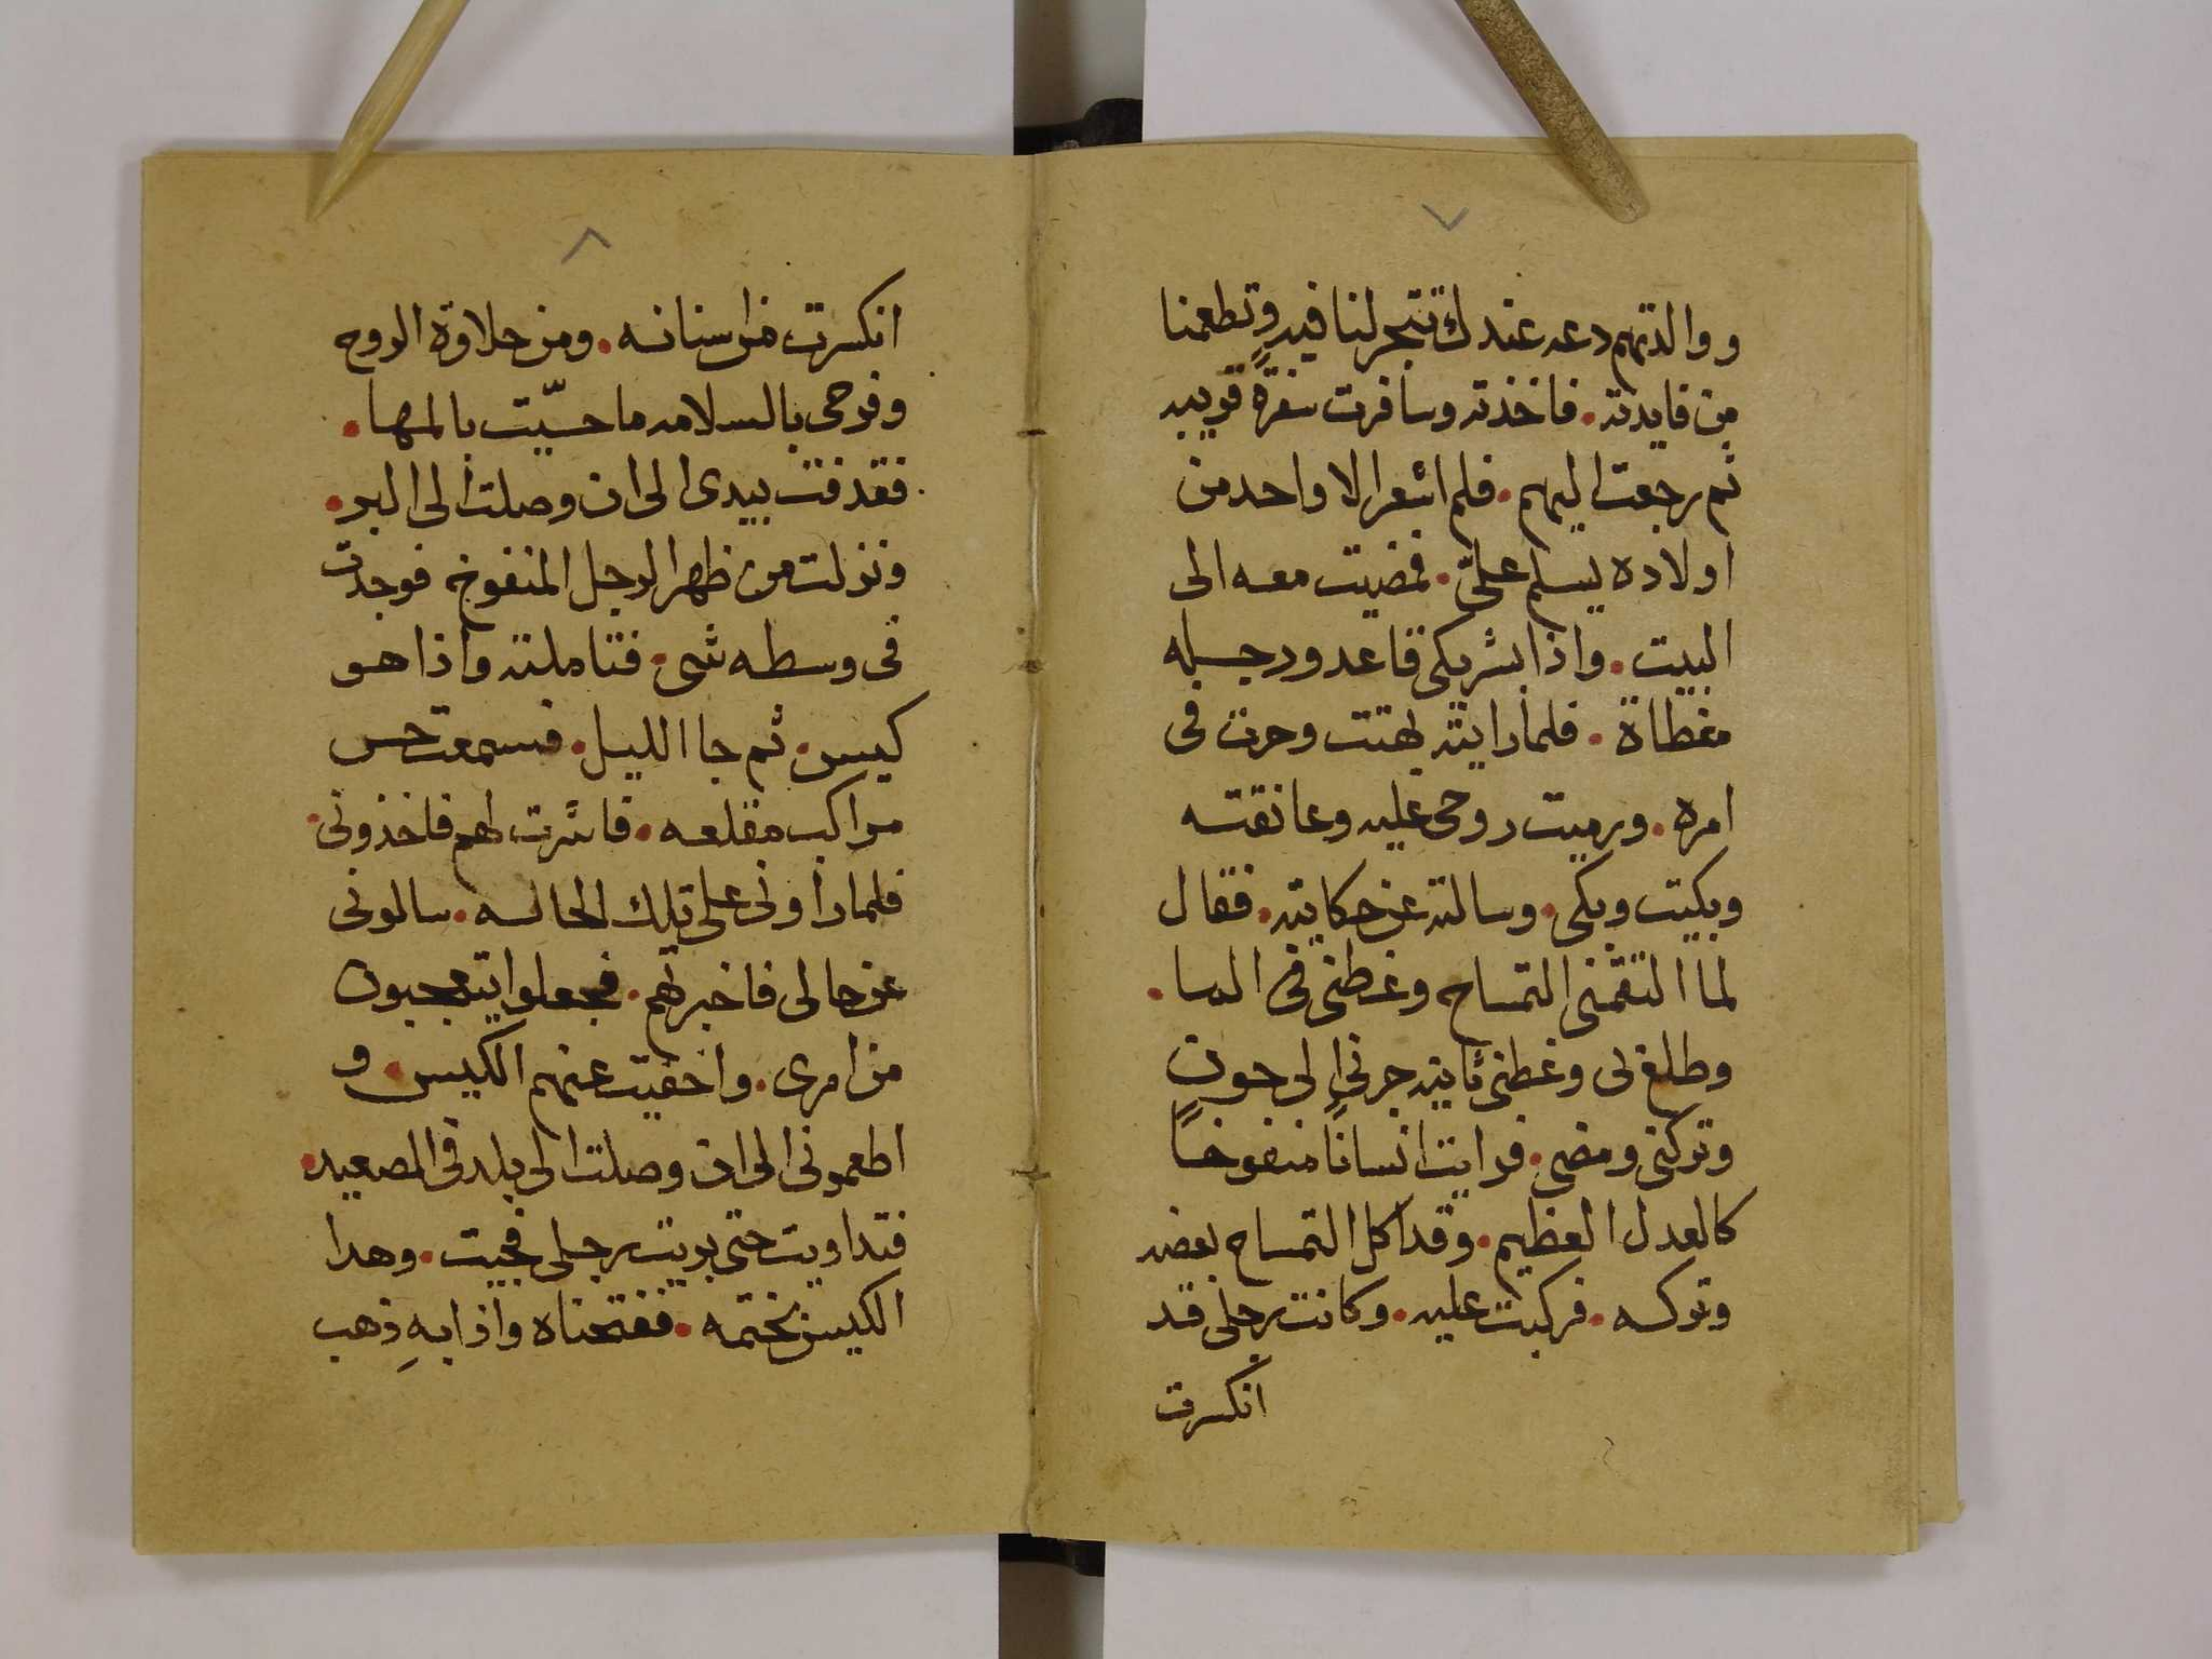 ٧
ووالدتهم دعه عندك تتجر لنا فيه وتطعمنا
من فايدته. فاخذته وسافرت سفرةً قريبه
ثم رجعت اليهم. فلم اشعر الا واحد من
اولاده يسلم علىّ. فمضيت معه الى
البيت. واذا بشريكى قاعد ورجله
مغطاة. فلما رايته بهتت وحرت فى
امره. ورميت روحى عليه وعانقته
وبكيت وبكى. وسالته عن حكايته. فقال
لما التقمنى التمساح وغطنى فى الما.
وطلع بى وغطنى ثانيه جرنى الى جون
وتركنى ومضى. فرايت انسانًا منفوخًا
كالعدل العظيم. وقد اكل التمساح بعضه
وتركه. فركبت عليه. وكانت رجلى قد
انكسرت
٨
انكسرت من اسنانه. ومن حلاوة الروح
وفرحى بالسلامه ما حسّيت بالمها.
فقدفت بيدى الى ان وصلت الى البر.
ونزلت من ظهر الرجل المنفوخ فوجدت
فى وسطه شى. فتاملته واذا هو
كيس. ثم جا الليل. فسمعت حس
مراكب مقلعه. فاشرت لهم فاخذونى.
فلما راونى على تلك الحاله. سالونى
عن حالى فاخبرتهم. فجعلوا يتعجبون
من امرى. واخفيت عنهم الكيس. و
اطعمونى الى ان وصلت الى بلد فى الصعيد.
فتداويت حتى بريت رجلى فجيت. وهدا
الكيس بختمه. ففتحناه واذا بهِ ذهب